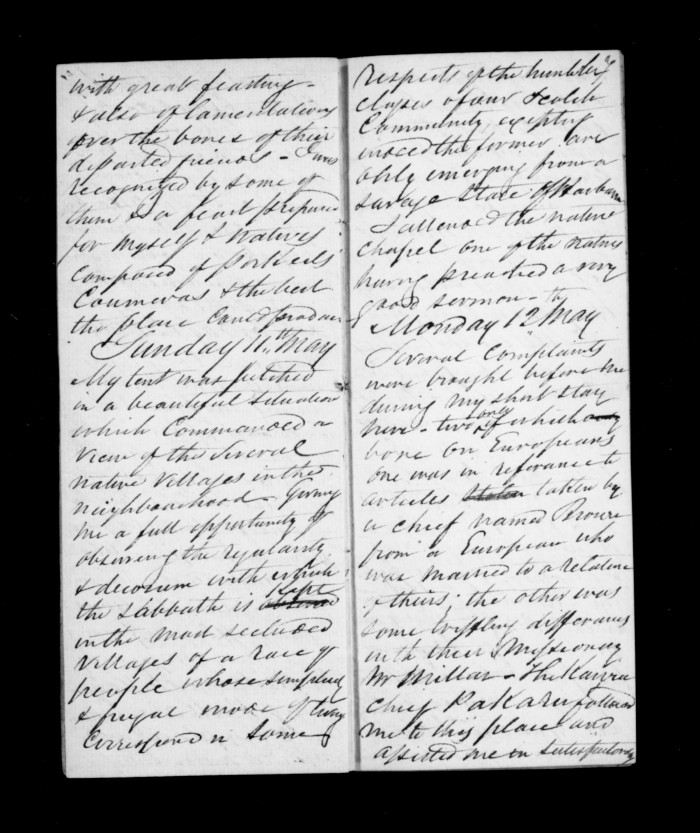 with great feasting -
& also of lamentations
over the bones of their
departed friends - I was
recognized by some of
them & a feast prepared
for myself & natives
composed of Pork eels
Coumeras & the best
the place could produce
Sunday 11th May
My tent was pitched
in a beautiful situation
which Commanded a
view of the several
native villages in the
neighbourhood - Giving
me a full opportunity of
observing the regularity
& decorum with which
the Sabbath is kept
in the most secluded
villages of a race of
people whose simplicity
& frugal mode of living
Correspond in some
respects of the humbler
classes of our Scotch
Community, excepting
indeed the former are
only emerging from a
savage state of
I attended the native
chapel one of the natives
having preached a very
good sermon -
Monday 12th May
Several Complaints
were brought before me
during my short stay
here - two only of which
bore on Europeans
one was in reference to
articles stolen taken by
a chief named
from a European who
was married to a relation
of theirs; the other was
some trifling differences
with their Missionary
Mr Millar - The Kawia
chief Pakaru followed
me to this place and
assisted me in satisfactorily